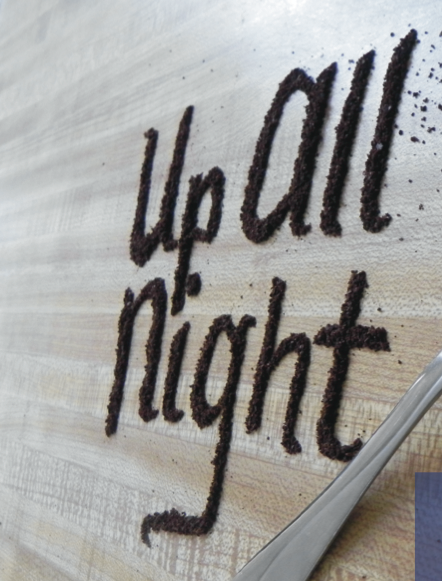 Up all
night